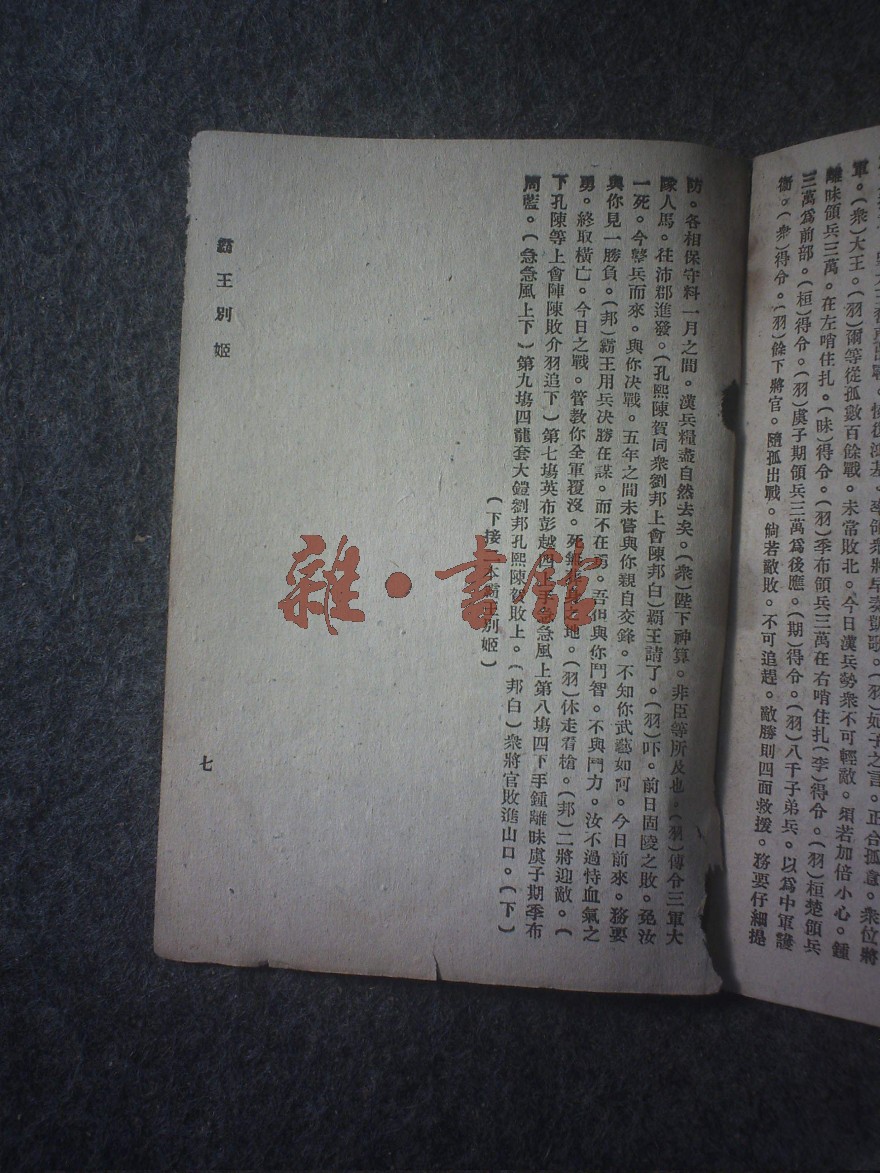 軍。(衆)大王。(羽)爾等從孤數百餘戰。未常敗北。今日漢兵勢衆不可輕敵。須若加倍小心。鍾
離昧領兵三萬。在左哨住扎。(昧)得令。(羽)季布領兵三萬在右哨住扎(季)得令。(羽)桓楚領兵
三萬爲前部。(桓)得令。(羽)虞子期領兵三萬爲後應。(期)得令。(羽)八千子弟兵。以爲中軍護
衞。(衆)得令。(羽)餘下將官。隨孤出戰。倘若敵敗。不可追趕。敵勝則四面救援。務要仔細提
防。各相保守料一月之間。漢兵糧盡自然去矣。(衆)陛下神算。非臣等所及也。(羽)傳令三軍大
隊人馬。往沛郡進發。(孔熙陳賀同衆劉邦上會陳邦白)霸王請了。(羽)吓。前日固陵之敗。免汝
一死。今擧兵而來。與你决戰。五年之間未嘗與你親自交鋒。不知你武藝如何。今日前來。務要
與你見一勝負。(邦)霸王用兵决勝在謀。而不在勇。吾但與你鬥智。不與鬥力。汝不過恃血氣之
勇。終取橫亡。今日之戰。管教你全軍覆沒。死無之地。(羽)休走看槍。(邦)二將迎敵。(
下孔陳等上會陣陳敗介羽追下)第七場英布彭越四手急急風上第八場四下手鍾離昧虞子期季布
周藍。(急急風上下)第九場四龍套大鎧劉邦孔熙陳賀敗上。(邦白)衆將官敗進山口。(下)
(下接本霸王別姬)
霸王別姬
七
雜·書館